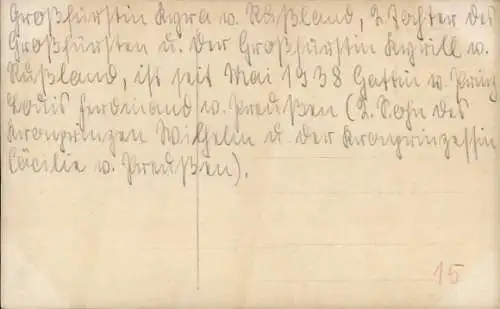 Großfürstin Kyra v. Rußland, 2. Tochter des
Großfürsten u. der Großfürstin Kyrill v.
Rußland, ist seit Mai 1938 Gattin v. Prinz
Louis Ferdinand v. Preußen (2. Sohn des
Kronprinzen Wilhelm u. der Kronprinzessin
Cäcilie v. Preußen).
15